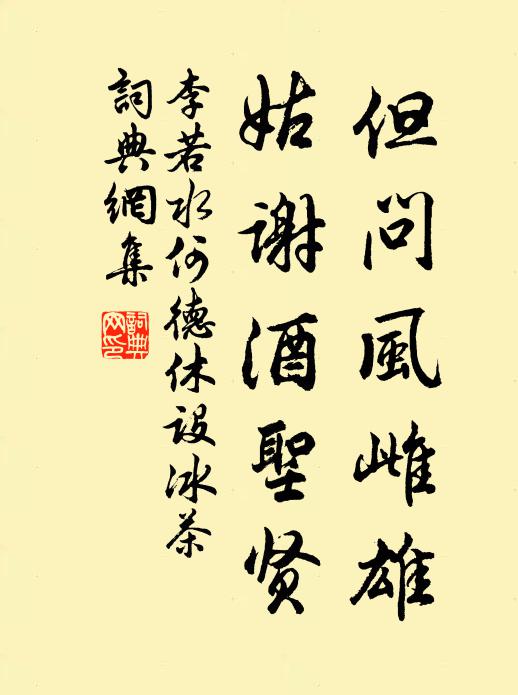 但问風雌雄
姑谢酒聖贤
李若水何德休设冰茶
詞典網集
詞典
网印